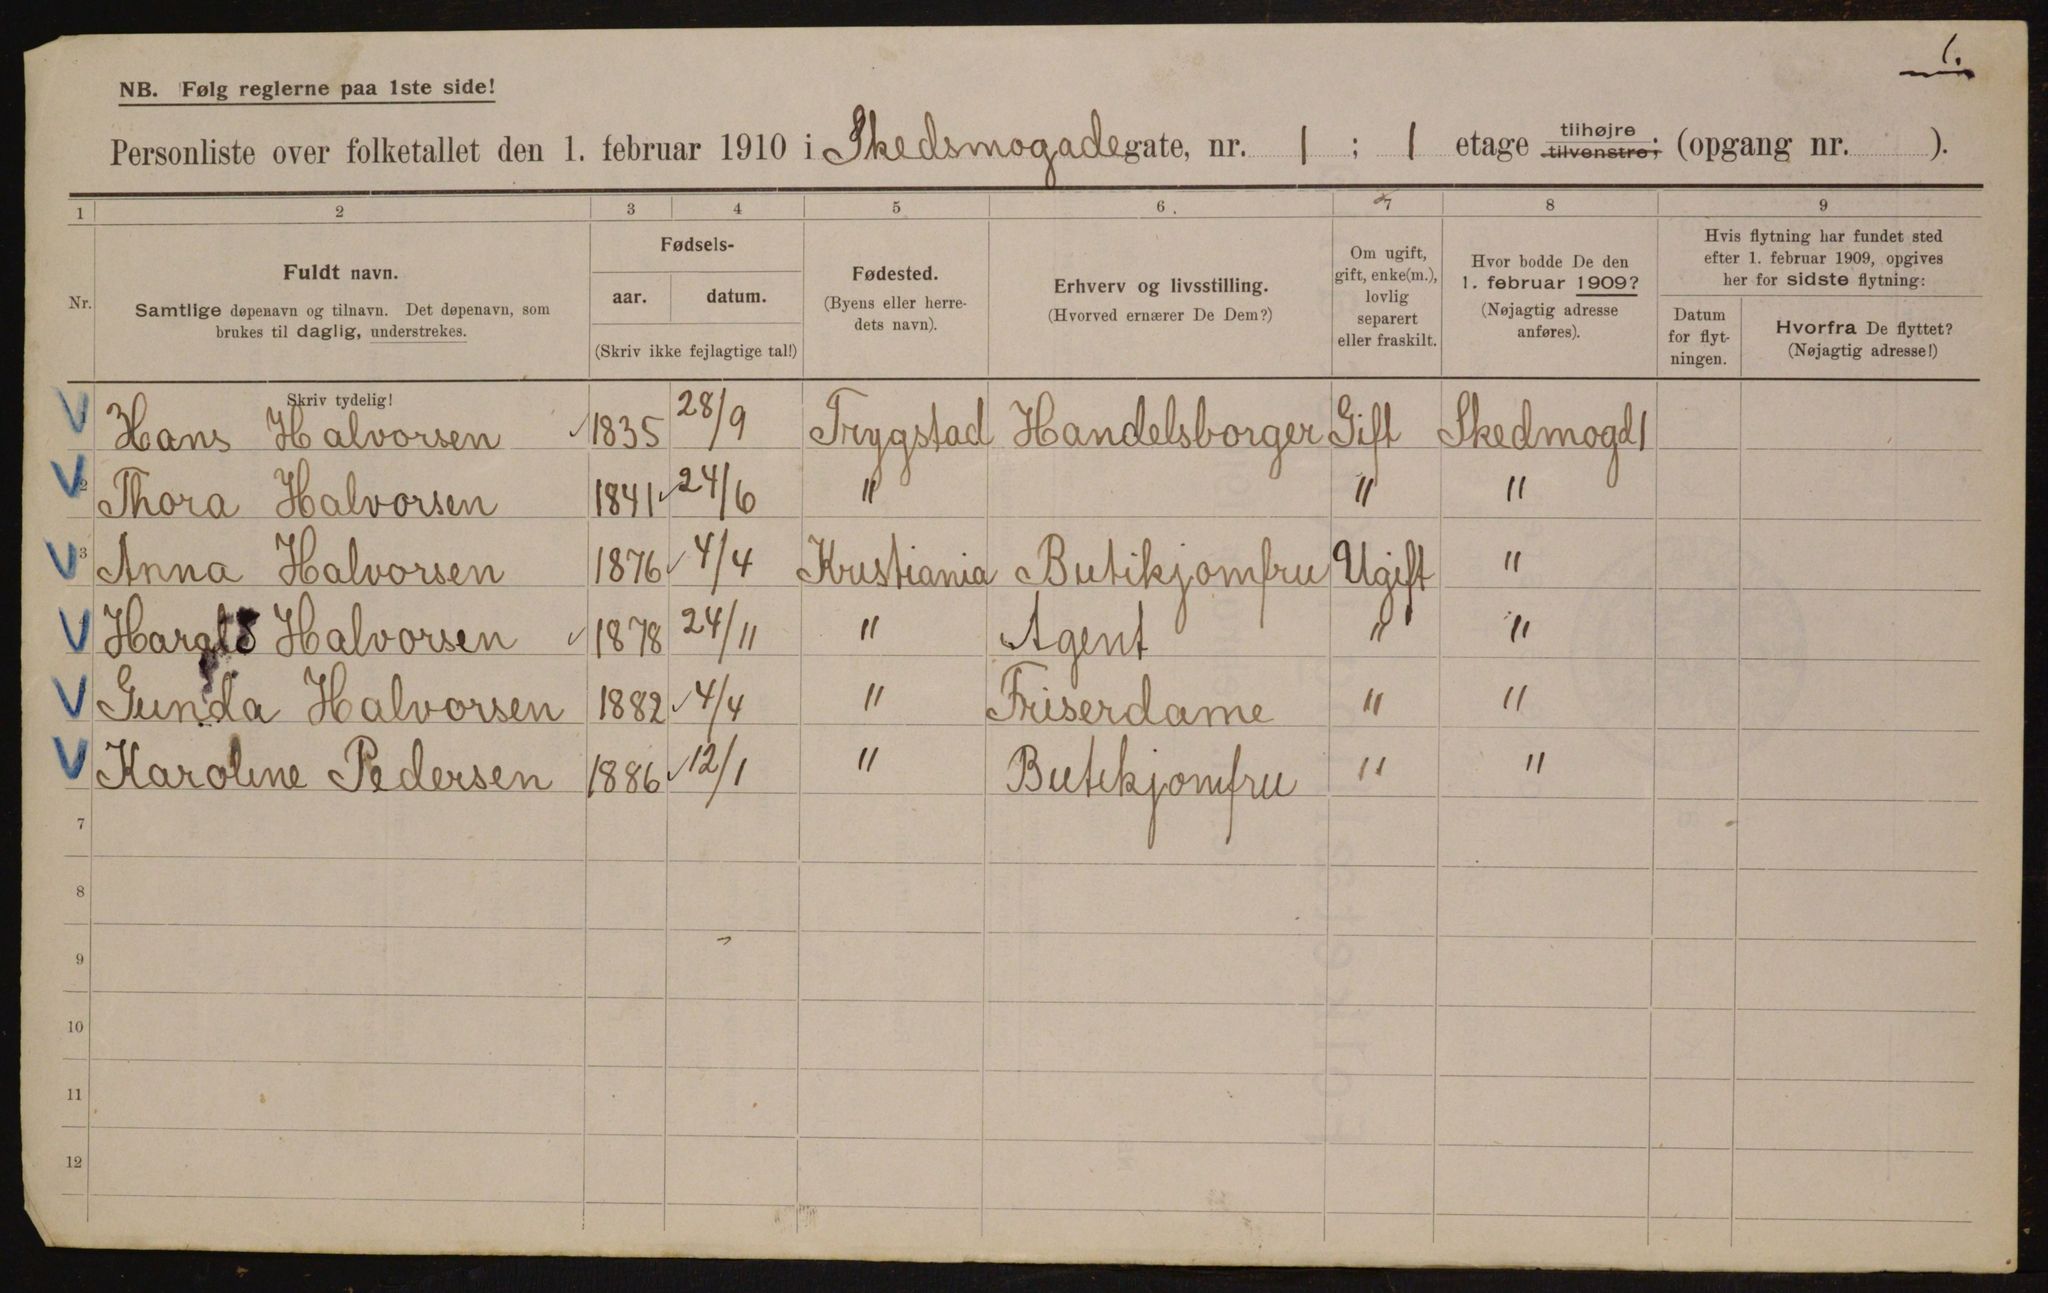 1.
NB. Følg reglerne paa 1ste side!
Personliste over folketallet den 1. februar 1910 i Skedsmogadegate, nr. 1 ; 1 etage tilhøjre tilvenstre; (opgang nr. ).
1 2 3 4 5 6. 7 8 9
Nr.
Fuldt navn.
Samtlige døpenavn og tilnavn. Det døpenavn, som
brukes til daglig, understrekes.
Fødsels-
aar. datum.
(Skriv ikke fejlagtige tal!)
Fødested.
(Byens eller herre-
dets navn).
Erhverv og livsstilling.
(Hvorved ernærer De Dem?)
Om ugift,
gift, enke(m.),
lovlig
separert
eller fraskilt.
Hvor bodde De den
1. februar 1909?
(Nøjagtig adresse
anføres).
Hvis flytning har fundet sted
efter 1. februar 1909, opgives
her for sidste flytning:
Datum
for flyt-
ningen.
Hvorfra De flyttet?
(Nøjagtig adresse!)
Skriv tydelig!
Hans Halvorsen 1835 28/9 Trygstad Handelsborger Gift Skedmogd 1
2 Thora Halvorsen 1841 24/6 " " "
3 Anna Halvorsen 1876 4/4 Kristiania Butikjomfru Ugift "
Harald Halvorsen 1878 24/11 " Agent " "
Gunda Halvorsen 1882 4/4 " Friserdame " "
Karoline Pedersen 1886 12/1 " Butikjomfru " "
7
8
9
10
11
12